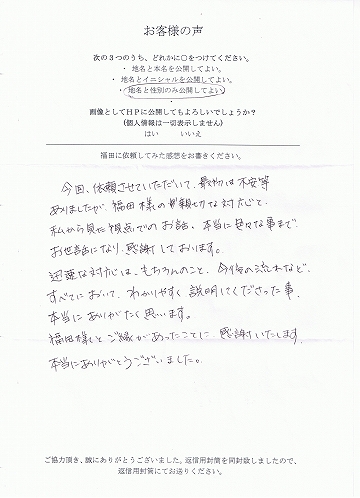 お客様の声
次の３つのうち、どれかに○をつけてください。
・ 地名と本名を公開してよい。
・ 地名とイニシャルを公開してよい。
・ 地名と性別のみ公開してよい
画像としてＨＰに公開してもよろしいでしょうか？
(個人情報は一切表示しません)
はい　　いいえ
福田に依頼してみた感想をお書きください。
今回、依頼させていただいて、最初は不安等
ありましたが、福田様の親切な対応と
私から見た視点でのお話、本当に色々な事まで
お世話になり、感謝しております。
迅速な対応は、もちろんのこと、今後の流れなど、
すべてにおいて、わかりやすく説明してくださった事、
本当にありがたく思います。
福田様とご縁があったことに、感謝いたします。
本当にありがとうございました。
ご協力頂き、誠にありがとうございました。返信用封筒を同封致しましたので、
返信用封筒にてお送りください。